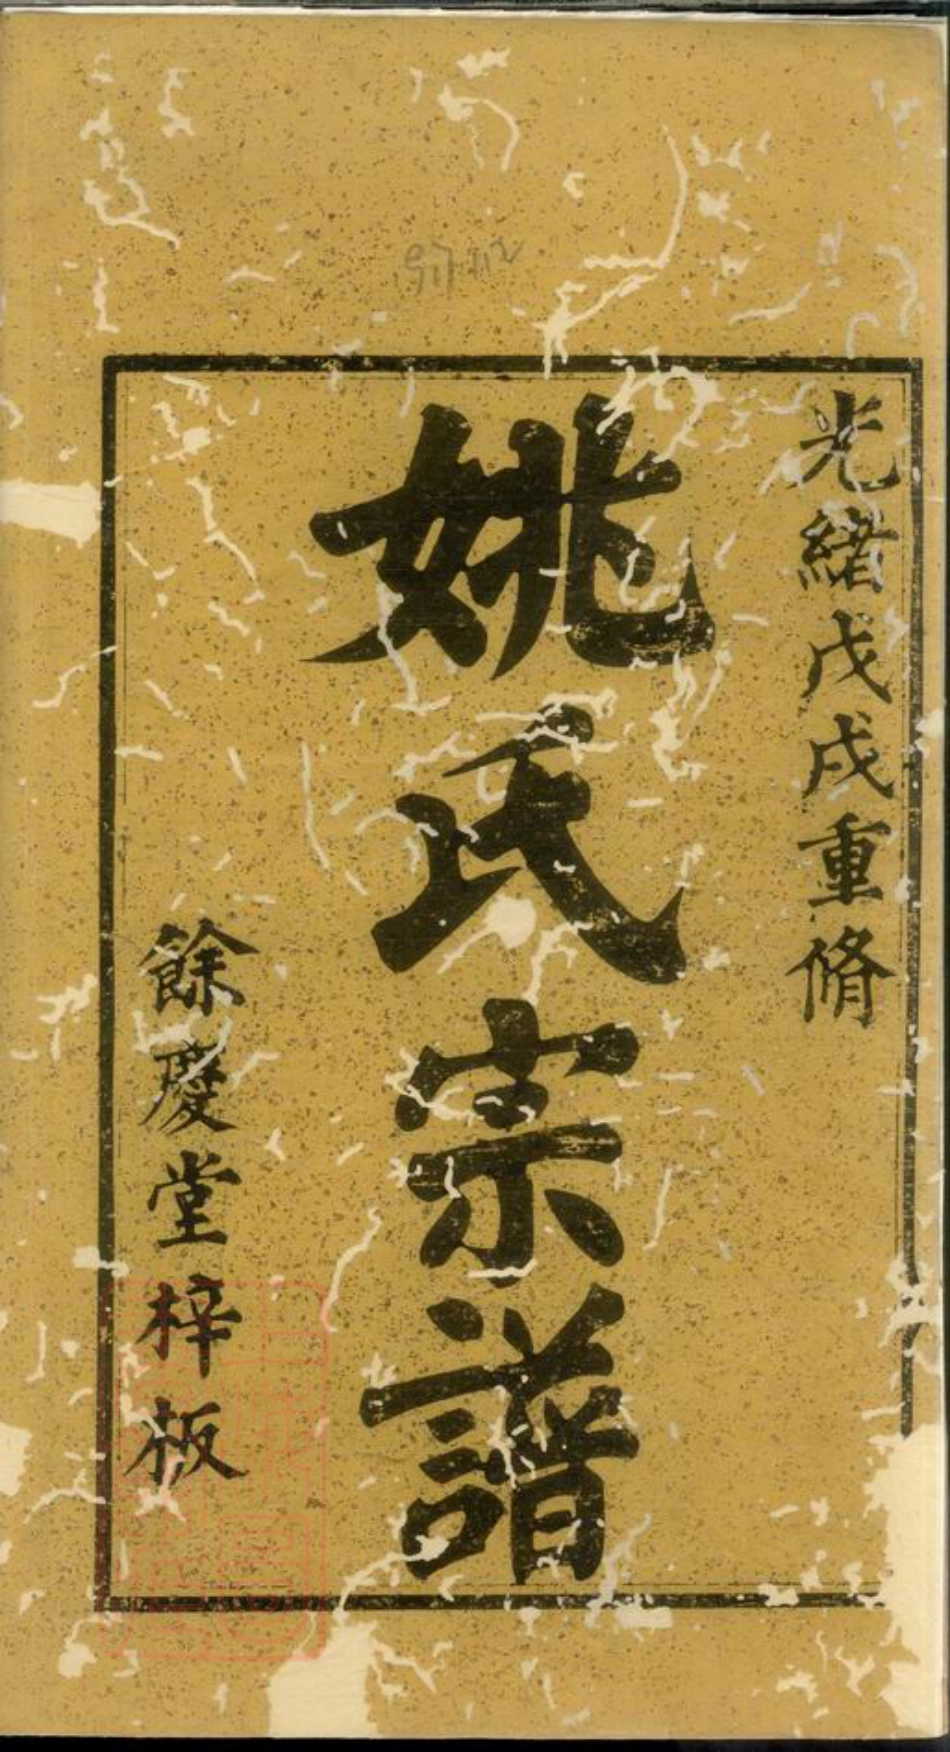 光緒戊戌重脩
姚氏宗譜
餘慶堂梓板